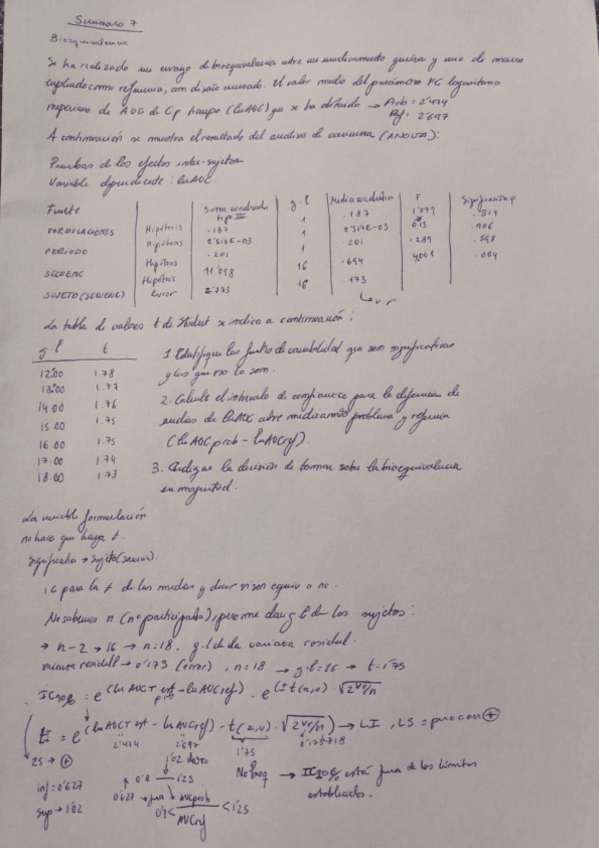 Seminario 7
Bioequivalencia
Se ha realizado un ensayo de bioequivalencia entre un medicamento genérico y uno de marca
empleado como referencia, con diseño cruzado. El valor medio del parámetro FC logaritmo
neperiano de AUC de Cp tiempo (lnAUC) que se ha obtenido → Prob = 2'474
Ref = 2'697
A continuación se muestra el resultado del análisis de varianza (ANOVA):
Pruebas de los efectos inter-sujetos
Variable dependiente: lnAUC.
Fuente Suma cuadrados tipo III g.l Media cuadrática F Significación p
FORMULACIONES Hipótesis .187 1 .187 1'079 .314
PERIODO Hipótesis 2'517E-03 1 2'517E-03 .015 .906
SECUENC Hipótesis .201 1 .201 .289 .598
SUJETO (SECUENC) Hipótesis 11'098 16 .694 4,001 .004
Error 2'773 16 .173
La tabla de valores t de Student se indica a continuación:
g.l t
12.00 1.78
13.00 1.77
14.00 1.76
15.00 1.75
16.00 1.75
17.00 1.74
18.00 1.73
1. Identifique las fuentes de variabilidad que son significativas
y las que no lo son.
2. Calcule el intervalo de confianza para la diferencia de
medias de lnAUC entre medicamento problema y referencia
(lnAUCprob - lnAUCref).
3. Indique la decisión de tomar sobre la bioequivalencia
en magnitud.
La variable formulación
no hace que haya
significativo → Sujeto (secuenc).
para la t de las medias y decir si son equiv o no.
No sabemos n (nº participantes), pero me dan gl de los sujetos:
→ n-2 → 16 → n=18, g.l de la varianza residual.
varianza residual → 0'173 (error), n=18 → g.l=16 → t=1'75
IC90% = e^(lnAUCT - lnAUCref) · e^(± t(a,v) · √2Vr/n)
LI = e^(lnAUCT - lnAUCref) - t(a,v) · √2Vr/n) → LI, LS = pero con ⊕
LS → ⊕
2'474 2'697 1'75 0'173 18
inf = 0'627
sup → 1'02
0'8 1'25
0'627 → fuera
AUCprob
AUCref
< 1'25
No beq → IC90% está fuera de los límites
establecidos.